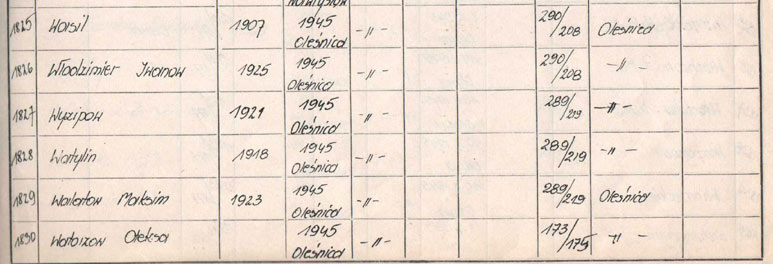 1825 Wasil 1907 1945 Oleśnica -"- 290/208 Oleśnica
1826 Włodzimier Iwanow 1925 1945 Oleśnica -"- 290/208 -"-
1827 1921 1945 Oleśnica -"- 289/219 -"-
1828 Watylin 1918 1945 Oleśnica -"- 289/219 -"-
1829 Maksim 1923 1945 Oleśnica -"- 289/219 Oleśnica
1830 Oleksa 1945 Oleśnica -"- 173/175 -"-